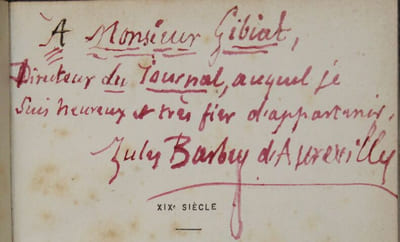 A Monsieur Gibiat,
Directeur du Journal, auquel je
suis heureux et très fier d'appartenir.
Jules Barbey d'Aurevilly
XIXᵉ SIÈCLE